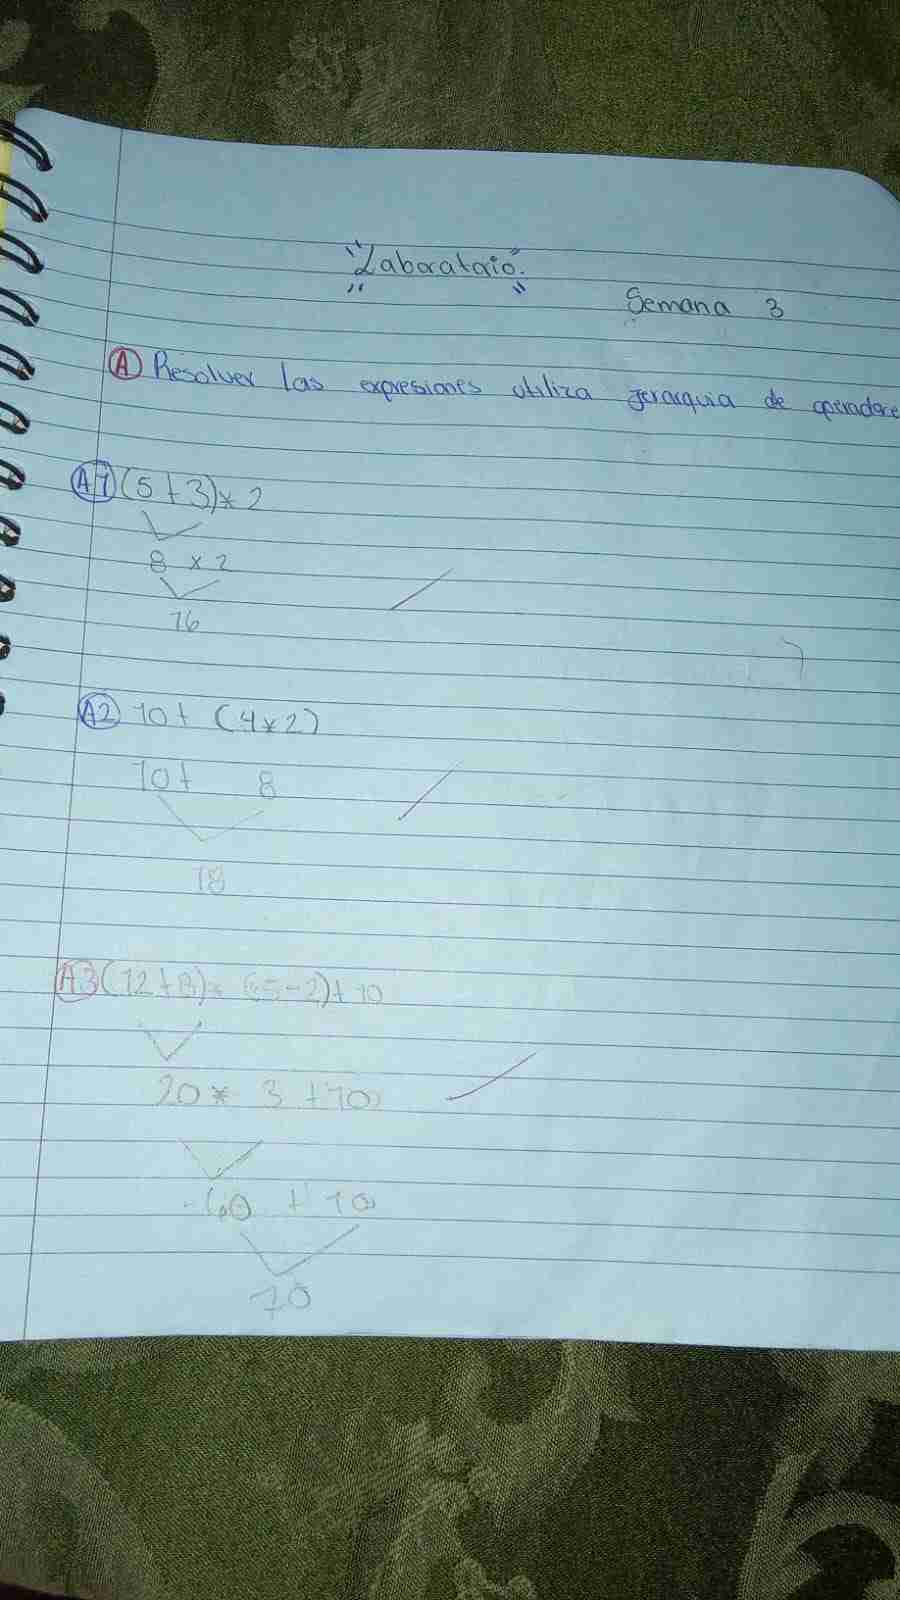 "Laborataio."
Semana 3
A Resolver las expresiones utiliza jerarquia de operadore
A1 (5+3)*2
8 x 2
16
A2 10+ (4*2)
10+ 8
18
A3 (12+8)* (5-2)+10
20* 3 +10
60 + 10
70